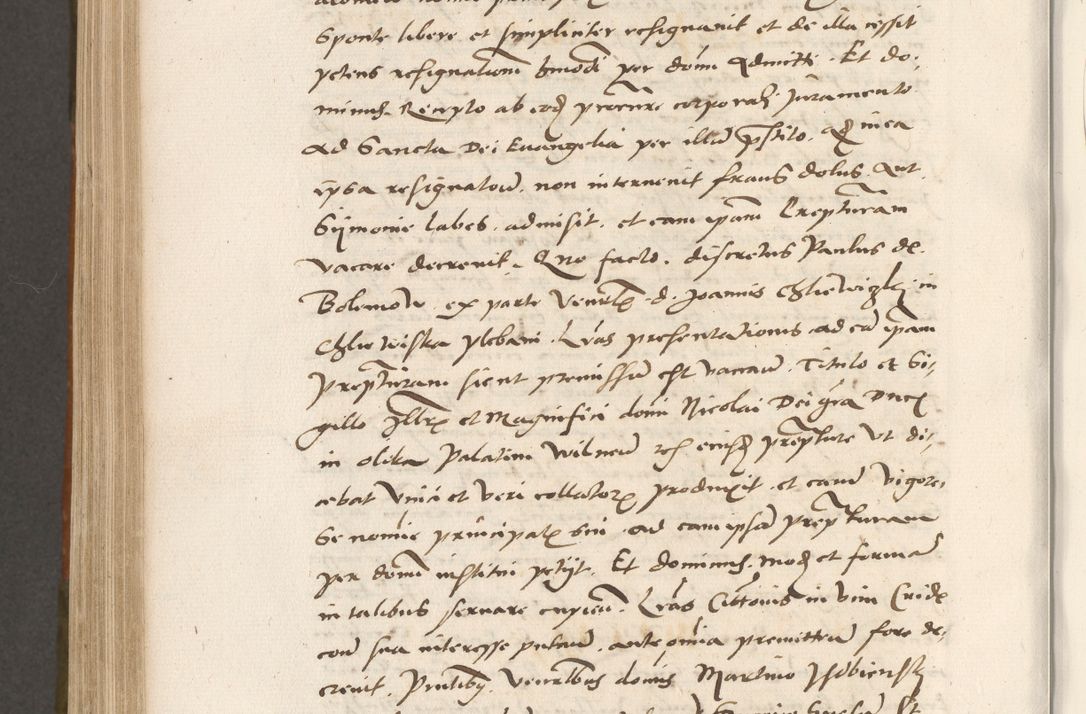 Sponte libere et simpliciter resignavit et de illa cessit
petens resignationem hmodi per dominum admitti. Et do-
minus. Recepto ab eodem procuratore corporali Juramento
ad Sancta Dei Euangelia per illum prestito. quod in ea
ipsa resignatione. non intervenit fraus dolus. aut
Symonie labes. admisit. et eam ipsam Prepturam
vacare decrevit. Quo facto. discretus Paulus de
Bolemow. ex parte Venerabilis d. Joannis Chlewiczky in
Chlewiska plebani. Lras presentationis ad eam ipsam
Prepturam sicut premissum est vacan. Titulo et Si-
gillo Illris et Magnifici domini Nicolai Dei gra Ducis
in olika Palatini Wilnen eiusdem prepture ut di-
cebat Unici et veri collatoris produxit. et eam vigore.
Se nomine principalis sui ad eam ipsam prepturam
per dominum institui petyt. Et dominus. modum et formam
in talibus servare cupien. Lras Cittonis in vim Cride
contra sua interesse putan. ante omnia premitten fore de-
crevit. Pntibus. Venerabilibus dominis Martino Isdbiensky